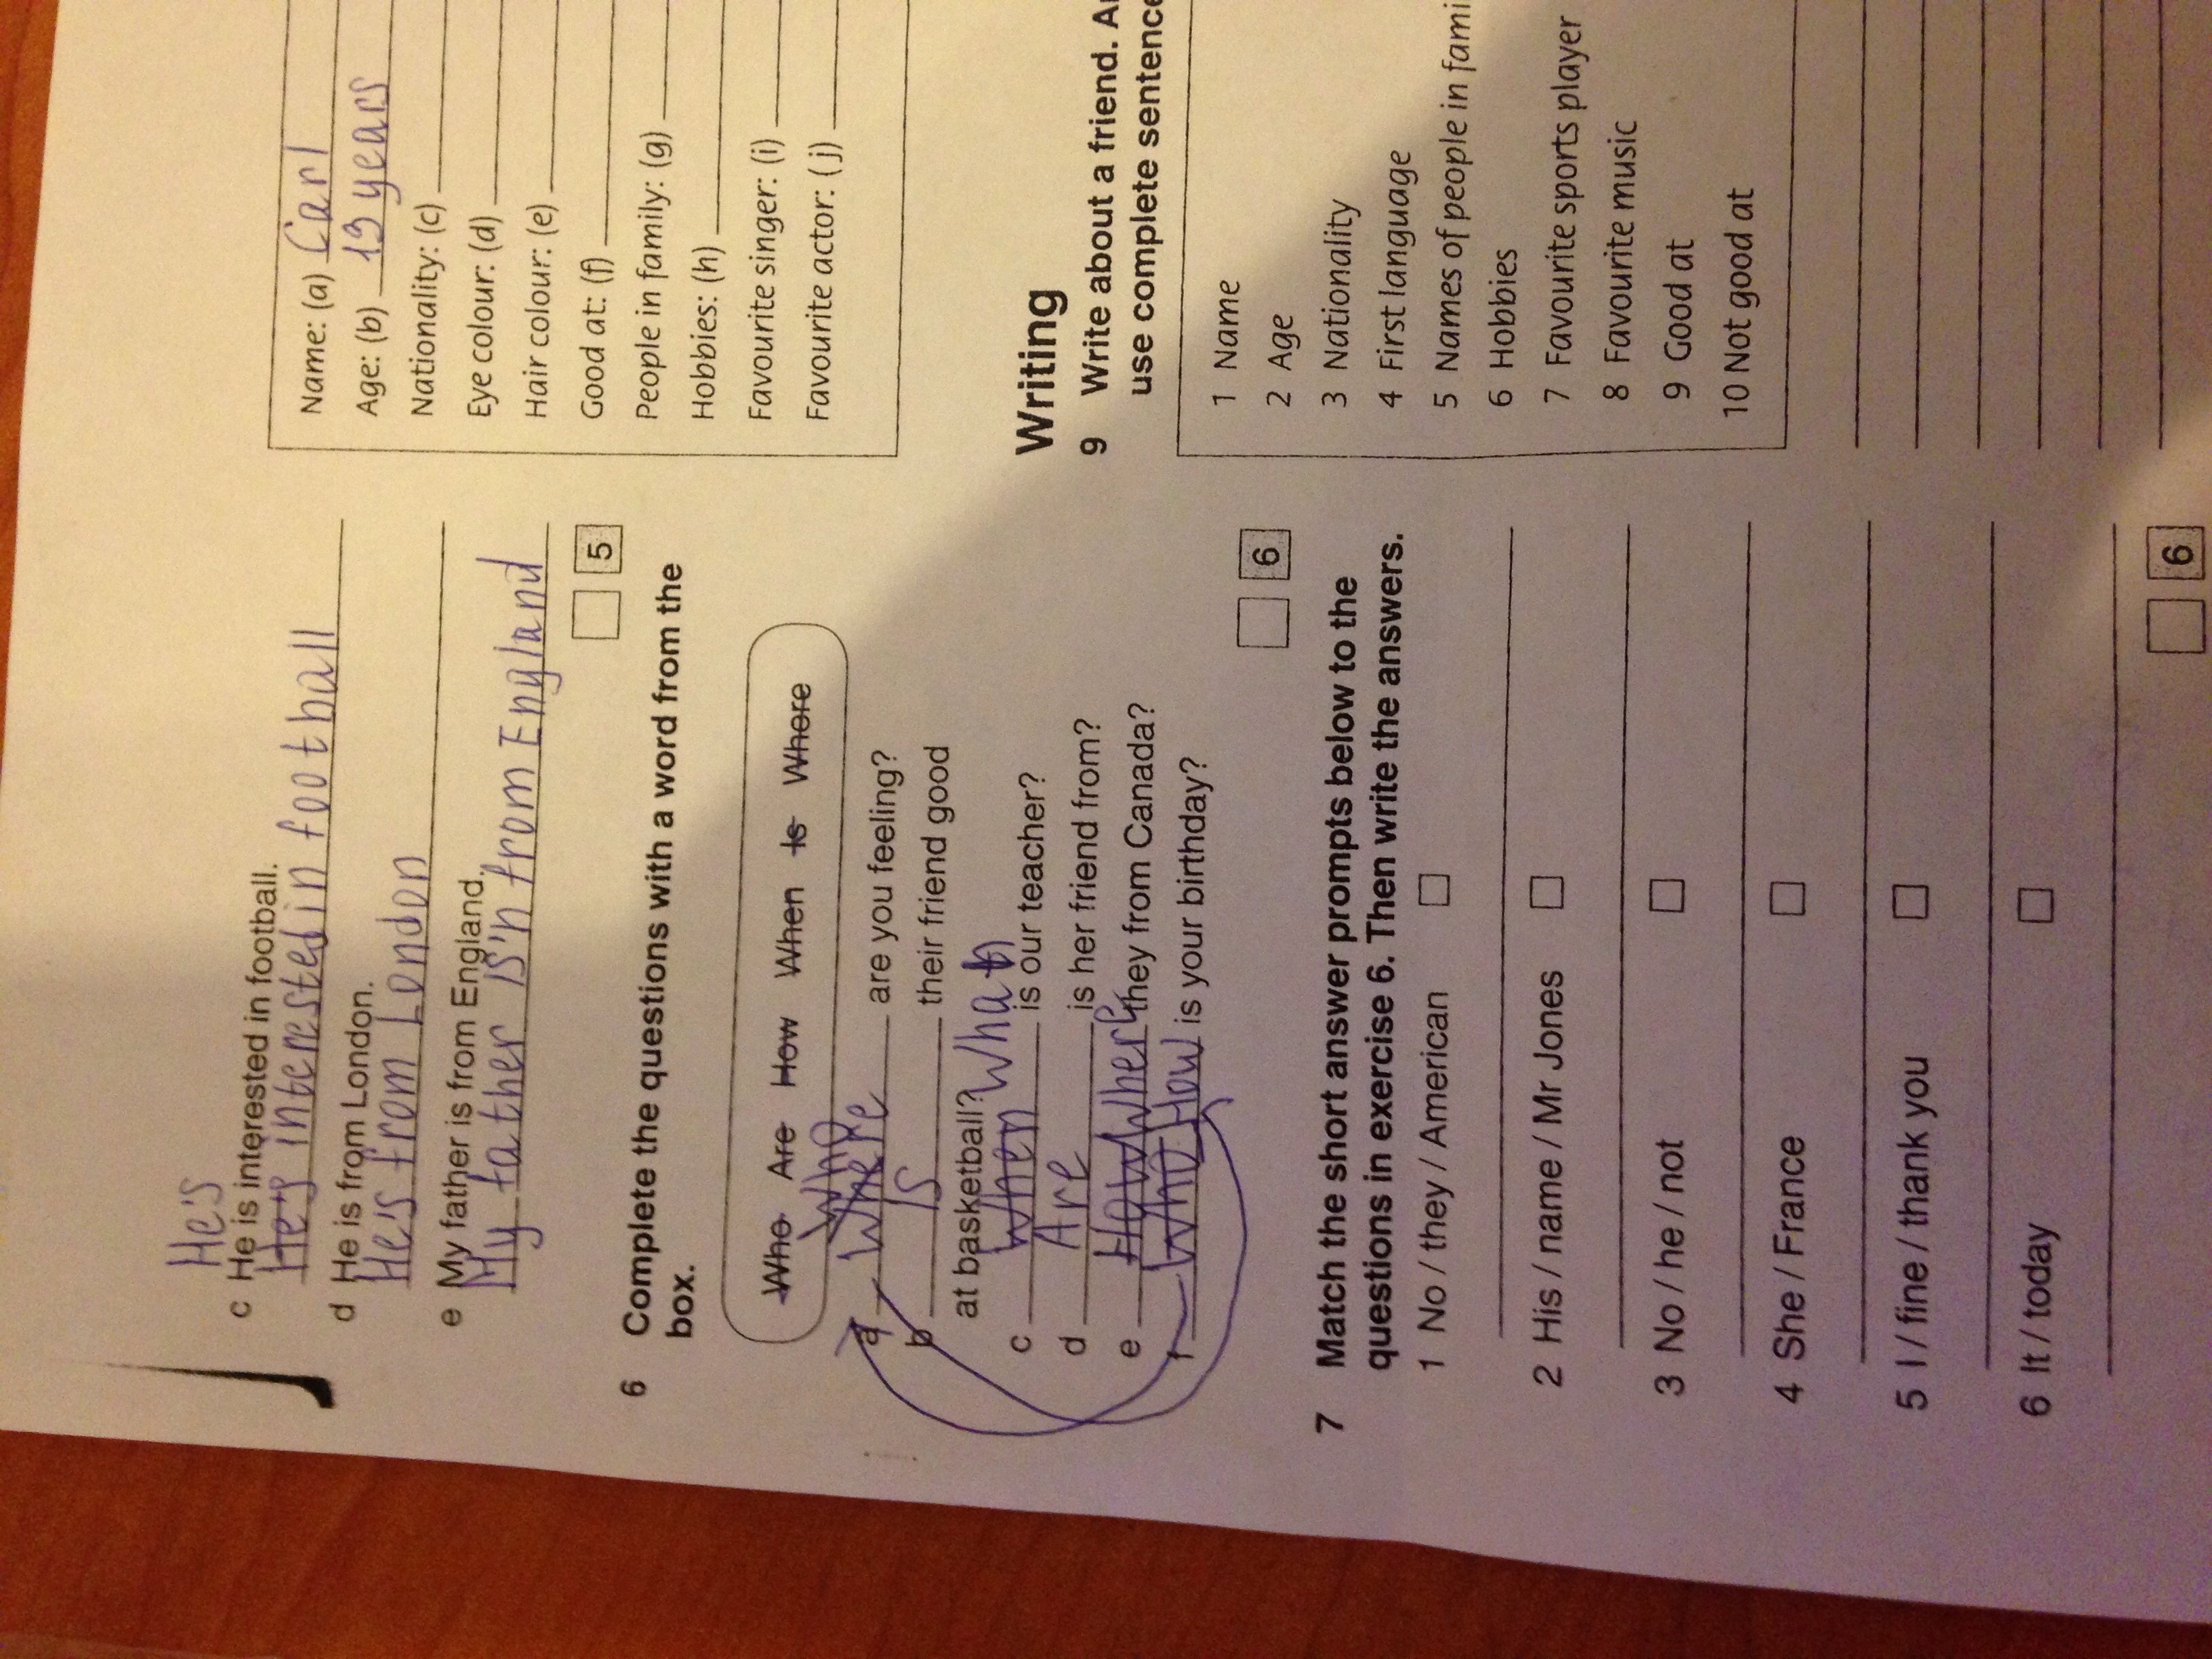 He's
c He is interested in football.
He's interested in football
d He is from London.
He's from London
e My father is from England.
My father is'n from England
5
6 Complete the questions with a word from the
box.
Who Are How When Is Where
Who
a Where are you feeling?
b Is their friend good
at basketball? What
c When is our teacher?
d Are is her friend from?
e How Where they from Canada?
f Who How is your birthday?
6
7 Match the short answer prompts below to the
questions in exercise 6. Then write the answers.
1 No / they / American
2 His / name / Mr Jones
3 No / he / not
4 She / France
5 I / fine / thank you
6 It / today
6
Name: (a) Carl
Age: (b) 13 years
Nationality: (c)
Eye colour: (d)
Hair colour: (e)
Good at: (f)
People in family: (g)
Hobbies: (h)
Favourite singer: (i)
Favourite actor: (j)
Writing
9 Write about a friend.
use complete
1 Name
2 Age
3 Nationality
4 First language
5 Names of people in
6 Hobbies
7 Favourite sports player
8 Favourite music
9 Good at
10 Not good at